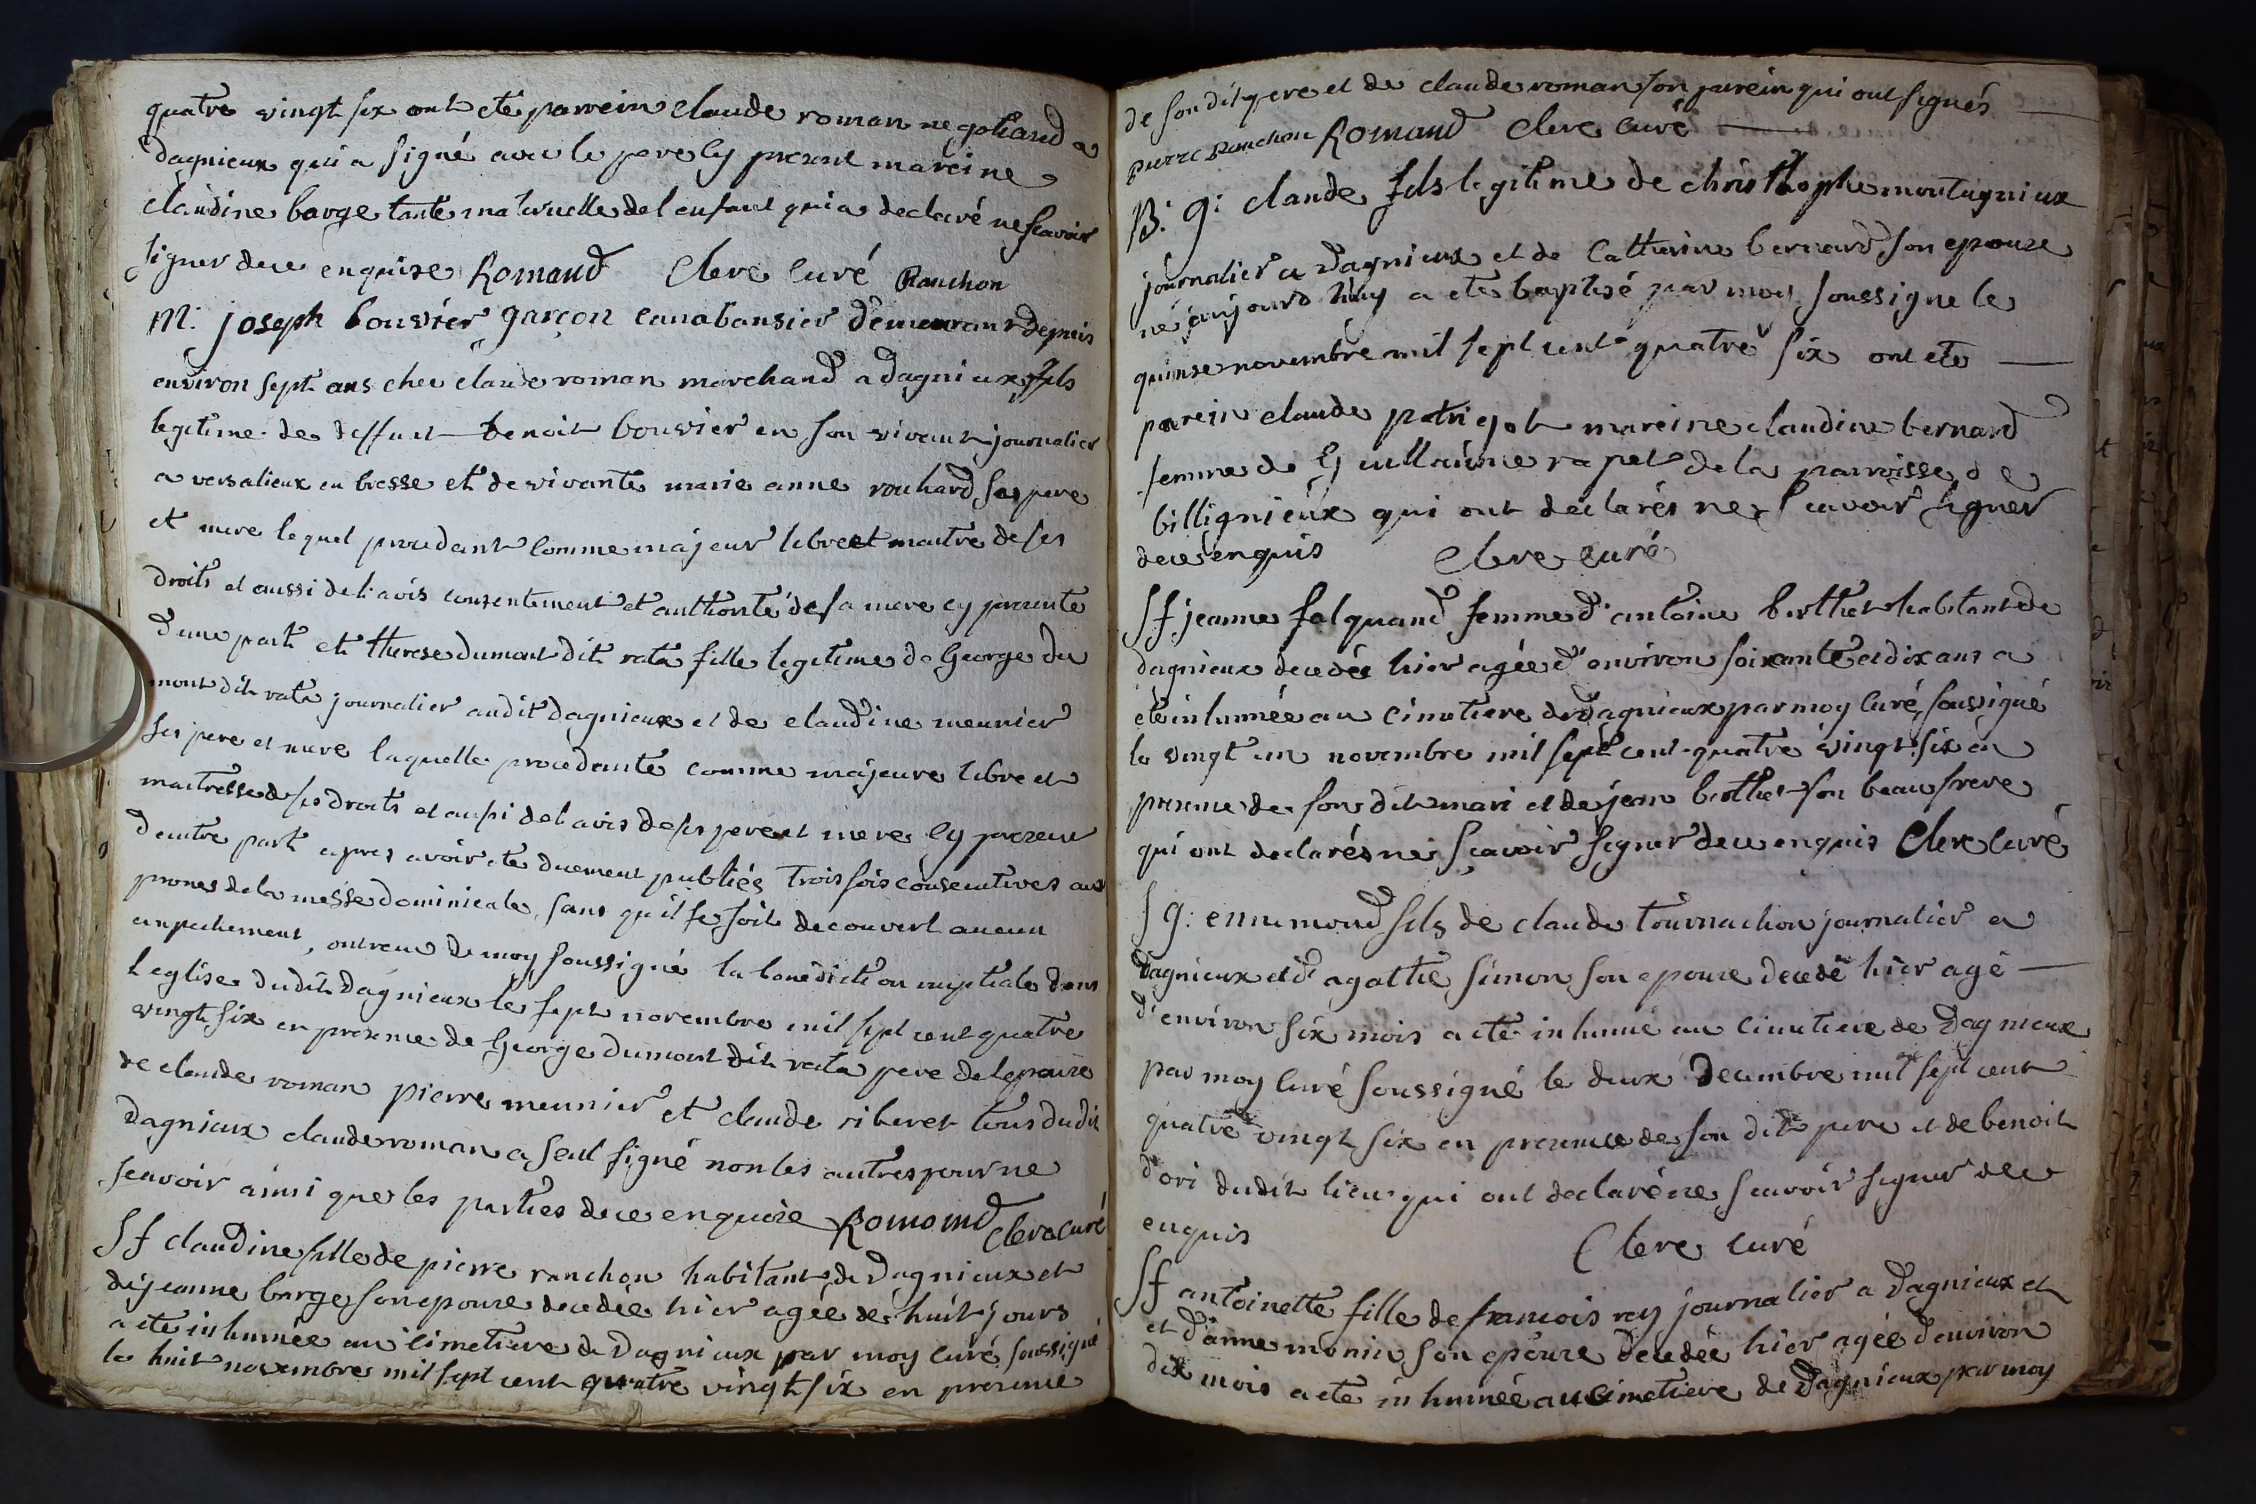 quatre vingt six ont ete parrein claude roman negotiand a
dagnieux qui a signé avec le pere cy present mareine
claudine barge tante maternelle de l enfant qui a declaré ne scavoir
signer de ce enquise Romand Clere curé Ranchon
M. joseph bouvier garçon canabansier demeurant depuis
environ sept ans chez claude roman marchand a dagnieux fils
legitime de deffunt benoit bouvier en son vivant journalier
a versalieux en bresse et de vivante marie anne rouhard ses pere
et mere lequel procedant comme majeur libre et maitre de ses
droits et aussi de l'avis consentement et authorité de sa mere cy presente
d'une part et therese dumont dit rata fille legitime de George du
mont dit rata journalier audit dagnieux et de claudine meunier
ses pere et mere laquelle procedante comme majeure libre et
maitresse de ses droits et aussi de l avis de ses pere et mere cy present
d'autre part apres avoir ete duement publiés trois fois consecutives aux
prones de la messe dominicale, sans qu'il se soit decouvert aucun
empechement, ont recu de moy soussigné la benediction nuptiale dans
l eglise dudit dagnieux le sept novembre mil sept cent quatre
vingt six en presence de George dumont dit rata pere de l epouse
de claude roman pierre meunier et claude riberet tous dudit
dagnieux claude roman a seul signé non les autres pour ne
scavoir ainsi que les parties de ce enquise Romand Clere curé
Sf claudine fille de pierre ranchon habitant de dagnieux et
de jeanne barge son epouse decedée hier agée de huit jours
a ete inhumée au cimetiere de dagnieux par moy curé soussigné
le huit novembre mil sept cent quatre vingt six en presence
de son dit pere et de claude roman son parein qui ont signés
Pierre Ranchon Romand Clere curé
B. g: claude fils legitime de christophe montagnieux
journalier a dagnieux et de Catherine bernard son epouse
né aujourd huy a ete baptisé par moy soussigne le
quinse novembre mil sept cent quatre v six ont ete
parein claude patrigot mareine claudine bernard
femme de Guillaume rapet de la parroisse de
billignieux qui ont declarés ne scavoir signer
de ce enquis Clere curé
Sf jeanne falquand femme d'antoine berthet habitant de
dagnieux decedée hier agée d'environ soixante et dix ans a
ete inhumée au cimetiere de dagnieux par moy curé soussigné
le vingt un novembre mil sept cent quatre vingt six en
presence de son dit mari et de jean berthet son beau frere
qui ont declarés ne scavoir signer de ce enquis Clere curé
S g: ennemond fils de claude tournachon journalier a
dagnieux et d'agathe simon son epouse decedé hier agé
d'environ six mois a ete inhumé au cimetiere de dagnieux
par moy curé soussigné le deux decembre mil sept cent
quatre vingt six en presence de son dit pere et de benoit
d'ori dudit lieu qui ont declaré ne scavoir signer de ce
enquis Clere curé
Sf antoinette fille de francois rey journalier a dagnieux et
et d'anne monin son epouse decedée hier agée d'environ
dix mois a ete inhumée au cimetiere de dagnieux par moy